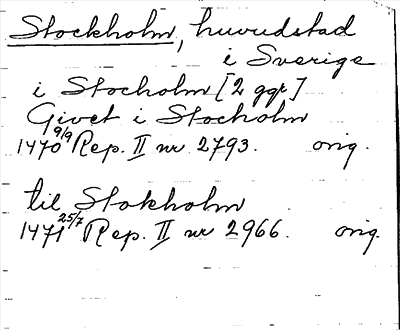 Stockholm, huvudstad
i Sverige
i Stocholm [2 ggr]
Givet i Stocholm
1470 9/9 Rep. II nr 2793. orig.
til Stokholm
1471 25/7 Rep. II nr 2966. orig.